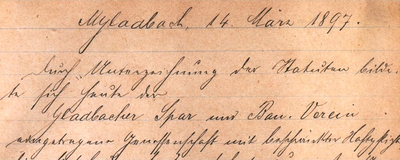 MGladbach, 14. März 1897.
Durch Unterzeichnung der Statuten bilde-
te sich heute der
Gladbacher Spar und Bau-Verein
eingetragene Genossenschaft mit beschränkter Haftpflicht